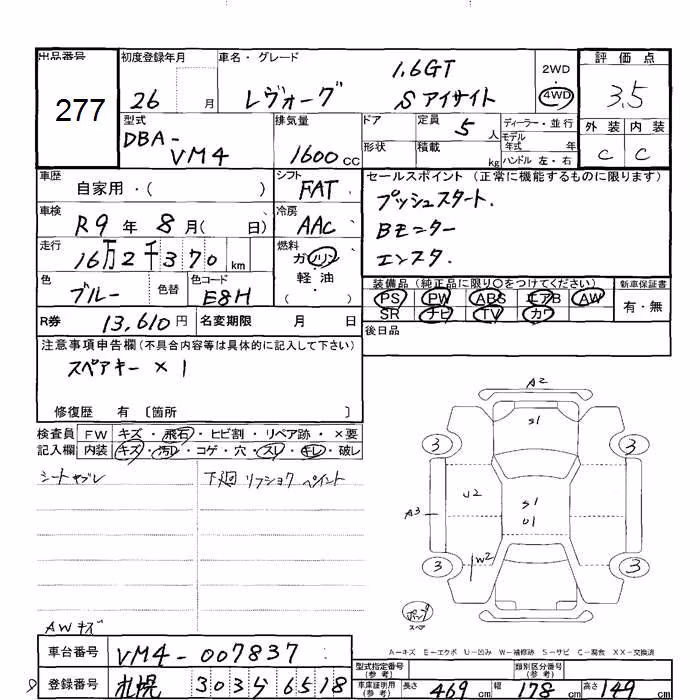 出品番号
277
初度登録年月
26 月
車名・グレード
レヴォーグ
1.6GT
Sアイサイト
2WD
・
4WD
評価点
3.5
外装 内装
C C
型式
DBA-
VM4
排気量
1600 cc
ドア
定員 5 人
形状
積載 kg
ディーラー・並行
モデル
年式 年
ハンドル 左・右
車歴
自家用・( )
シフト
FAT
車検
R9年 8月( 日)
冷房
AAC
走行
16万2千370 km
燃料
ガソリン
軽油
( )
色
ブルー
色替
色コード
E8H
R券 13,610円
名変期限 月 日
セールスポイント(正常に機能するものに限ります)
プッシュスタート.
Bモニター
エンスタ.
装備品(純正品に限り〇をつけてください)
PS PW ABS エアB AW
SR ナビ TV カワ
新車保証書
有・無
後日品
注意事項申告欄(不具合内容等は具体的に記入して下さい)
スペアキー×1
修復歴 有 〔箇所 〕
検査員
記入欄
FW キズ・飛石・ヒビ割・リペア跡・×要
内装 キズ・汚レ・コゲ・穴・スレ・キレ・破レ
シートヤブレ
下廻リフショク ペイント
AWキズ
A2
S1
3 3
U2
S1
U1
A3
W2
3 3
スペア
A-キズ E-エクボ U-凹み W-補修跡 S-サビ C-腐食 XX-交換済
車台番号 VM4-007837
登録番号 札幌 303 ラ 6518
型式指定番号
(参考)
類別区分番号
(参考)
車庫証明用
(参考)
長さ 469 cm 幅 178 cm 高さ 149 cm